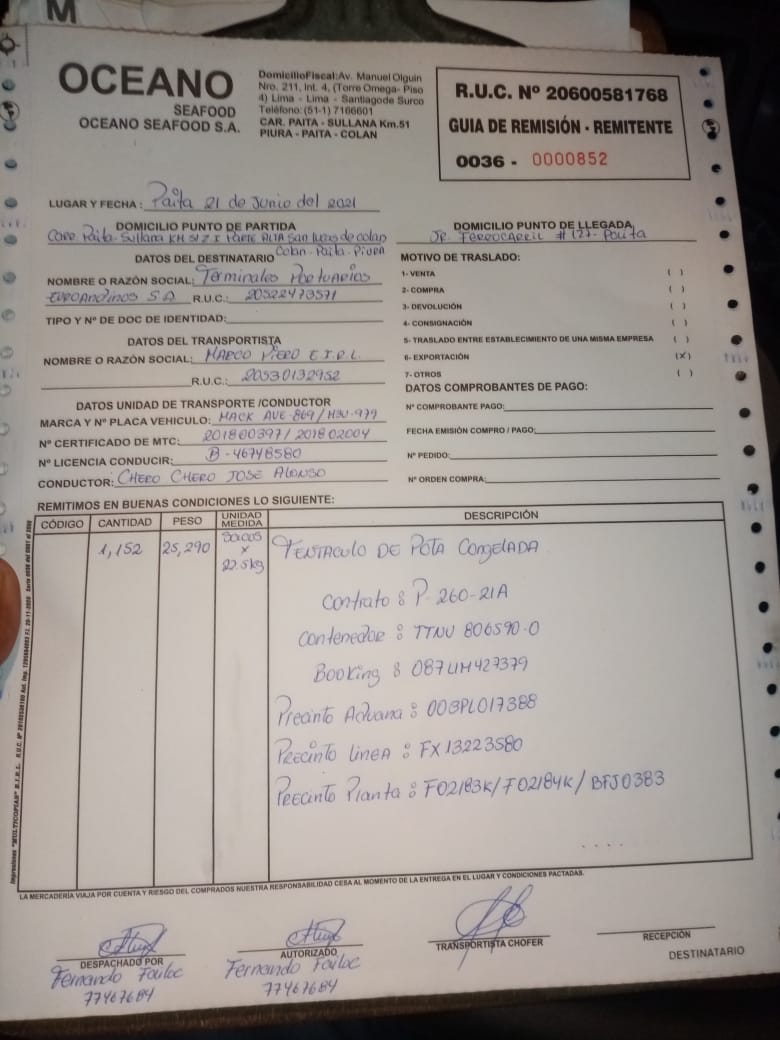 M
OCEANO
SEAFOOD
OCEANO SEAFOOD S.A.
DomicilioFiscal:Av. Manuel Olguin
Nro. 211, Int. 4, (Torre Omega- Piso
4) Lima - Lima - Santiagode Surco
Teléfono:(51-1) 7166601
CAR. PAITA - SULLANA Km.51
PIURA - PAITA - COLAN
R.U.C. Nº 20600581768
GUIA DE REMISIÓN - REMITENTE
0036 - 0000852
LUGAR Y FECHA : Paita 21 de Junio del 2021
DOMICILIO PUNTO DE PARTIDA
Carr. Paita-Sullana KM 51 Z I PARTE ALTA San Lucas de colan
Colan-Paita-Piura
DOMICILIO PUNTO DE LLEGADA
JR. FERROCARRIL #127- Paita
DATOS DEL DESTINATARIO
NOMBRE O RAZÓN SOCIAL: Terminales Portuarios
EUROANDINOS S A R.U.C.: 20522473571
TIPO Y Nº DE DOC DE IDENTIDAD:
DATOS DEL TRANSPORTISTA
NOMBRE O RAZÓN SOCIAL: MARCO PIERO E.I.R.L.
R.U.C.: 20530132952
DATOS UNIDAD DE TRANSPORTE /CONDUCTOR
MARCA Y Nº PLACA VEHICULO: MACK AVE-869/ M3U-979
Nº CERTIFICADO DE MTC: 201800397/ 201802004
Nº LICENCIA CONDUCIR: B-46748580
CONDUCTOR: CHERO CHERO JOSE ALONSO
MOTIVO DE TRASLADO:
1- VENTA ( )
2- COMPRA ( )
3- DEVOLUCIÓN ( )
4- CONSIGNACIÓN ( )
5- TRASLADO ENTRE ESTABLECIMIENTO DE UNA MISMA EMPRESA ( )
6- EXPORTACIÓN (X)
7- OTROS ( )
DATOS COMPROBANTES DE PAGO:
Nº COMPROBANTE PAGO:
FECHA EMISIÓN COMPRO / PAGO:
Nº PEDIDO:
Nº ORDEN COMPRA:
REMITIMOS EN BUENAS CONDICIONES LO SIGUIENTE:
CÓDIGO CANTIDAD PESO UNIDAD MEDIDA DESCRIPCIÓN
1,152 25,290 Sacos x 22.5kg TENTACULO DE POTA CONGELADA
Contrato : P-260-21A
Contenedor : TTNU 806590-0
Booking : 087LIM427379
Precinto Aduana : 003PL017388
Precinto Linea : FX13223580
Precinto Planta : F02183K/F02184K/ BFJ0383
LA MERCADERÍA VIAJA POR CUENTA Y RIESGO DEL COMPRADOS NUESTRA RESPONSABILIDAD CESA AL MOMENTO DE LA ENTREGA EN EL LUGAR Y CONDICIONES PACTADAS.
DESPACHADO POR
Fernando
77467684
AUTORIZADO
Fernando
77467684
TRANSPORTISTA CHOFER
RECEPCIÓN
DESTINATARIO